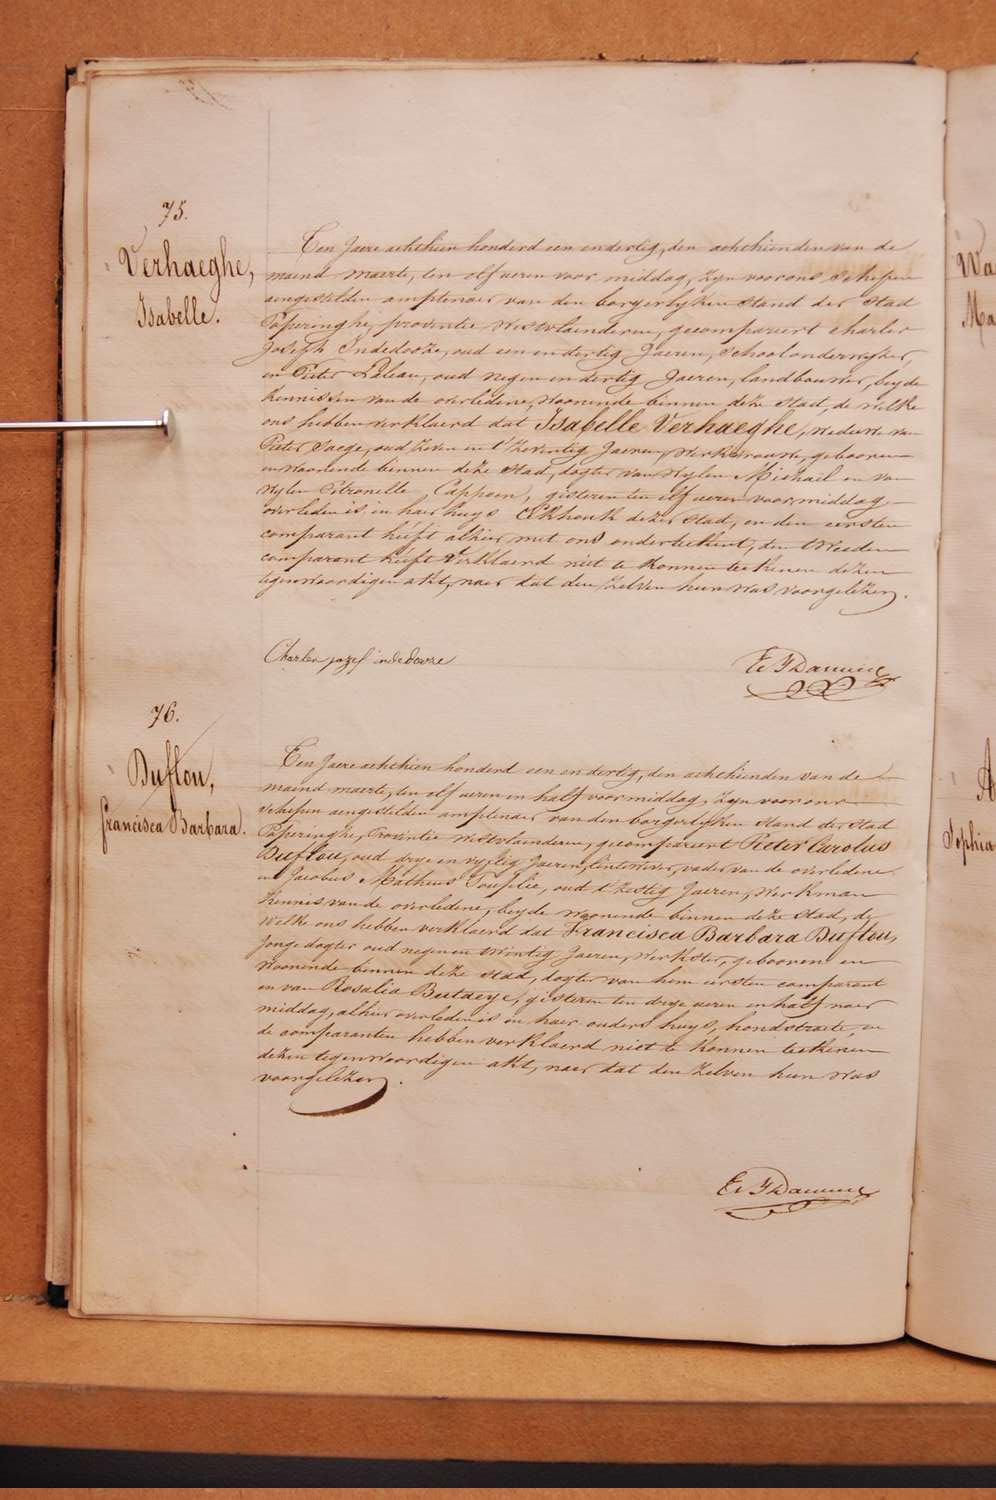 75.
Verhaeghe,
Isabelle.
Ten Jaere achthien honderd een en dertig, den achthienden van de
maend maerte, ten elf ueren voor middag, zyn voor ons schepen
aengestelden amptenaer van den borgerlyken stand der stad
Poperinghe, provintie westvlaenderen, gecompareert charles
Joseph Indedooze, oud een en dertig Jaeren, schoolonderwyzer,
en Pieter Laleau, oud negen en dertig Jaeren, landbouwer, beyde
kennissen van de overledene, woonende binnen deze stad, de welke
ons hebben verklaerd dat Isabelle Verhaeghe, weduwe van
Pieter oud zeven en t'zeventig Jaeren, werkvrouwe, gebooren
en woonende binnen deze stad, dogter van wylen Michael en van
wylen Petronelle Cappoen, gisteren ten elf ueren voormiddag
overleden is in haer huys Ekhoek dezer stad, en den eersten
comparant heeft alhier met ons onderteekent, den tweeden
comparant heeft verklaerd niet te konnen teekenen dezen
tegenwoordigen akt, naer dat den zelven hun was voorgelezen.
Charles jozef indedovre
76.
Duflou,
francisca Barbara.
Ten Jaere achthien honderd een en dertig, den achthienden van de
maend maerte, ten elf ueren en half voormiddag, zyn voor ons
schepen aengestelden amptenaer van den borgerlyken stand der stad
Poperinghe, Provintie westvlaenderen, gecompareert Pieter Carolus
Duflou, oud drye en vyftig Jaeren, lintwever, vader van de overledene
en Jacobus Matheus Toufflie, oud t'zestig Jaeren, werkman
kennis van de overledene, beyde woonende binnen deze stad, de
welke ons hebben verklaerd dat Francisca Barbara Duflou,
jonge dogter oud negen en twintig Jaeren, werkster, gebooren en
woonende binnen deze stad, dogter van hem eersten comparant
en van Rosalia Butaeye, gisteren ten drye ueren en half naer
middag, alhier overleden is in haer ouders huys, hondstraete, en
de comparanten hebben verklaerd niet te konnen teekenen
dezen tegenwoordigen akt, naer dat den zelven hun was
voorgelezen.
Wa
Ma
A
Sophia